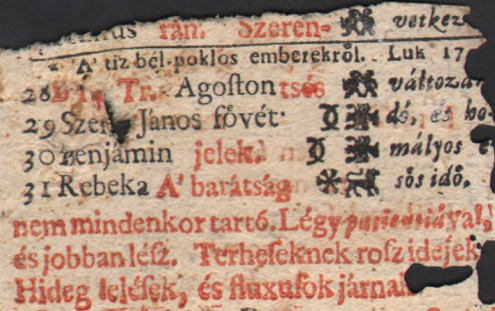 rán. Szeren- vetkez
A' tiz bél-poklos emberekröl. Luk 17
28 Tr. Agoston tsés változa
29 Szent János fővét: dó, és ho-
30 Benjámin jelek. mályos
31 Rebeka A' barátság sős idő.
nem mindenkor tartó. Légy patientiával,
és jobban lész. Terheseknek rosz idejek
Hideg lelések, és fluxusok járnak